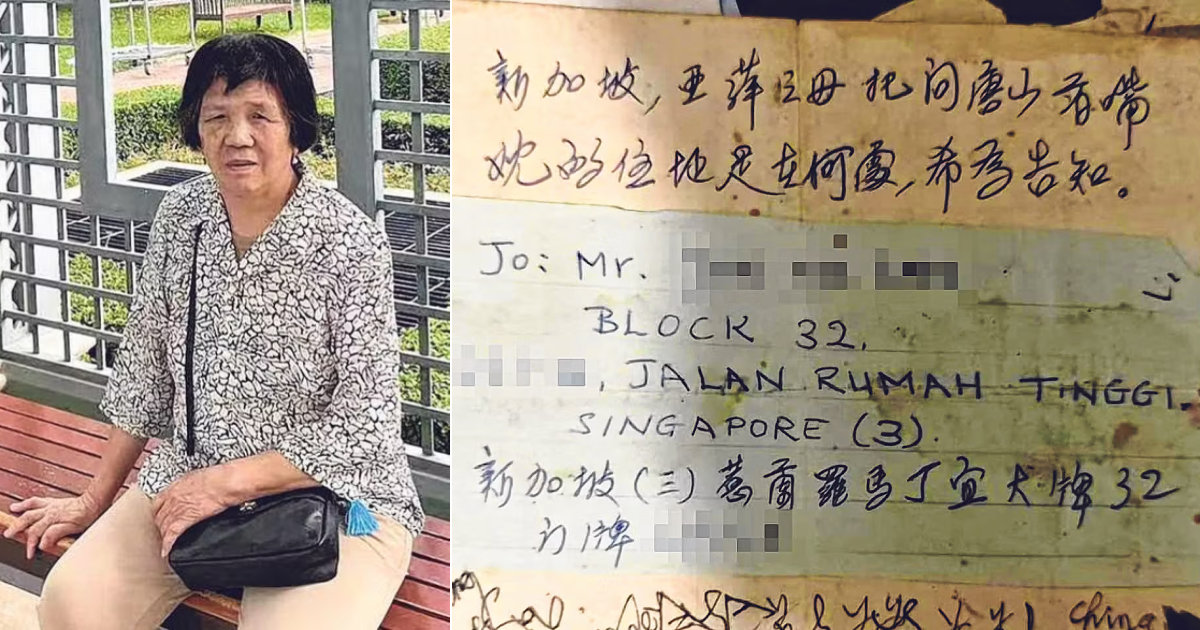 新加坡,亚萍母托问唐山嘴
的住地是在何處,希为告知。
To: Mr.
BLOCK 32,
, JALAN RUMAH TINGGI.
SINGAPORE (3).
新加坡(三)惹蘭羅馬丁宜大牌32
门牌
China